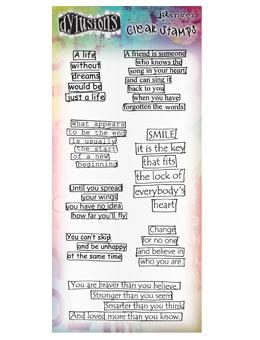 dylusions
Ranger
Clear Stamps
A life
without
dreams
would be
just a life
A friend is someone
who knows the
song in your heart
and can sing it
back to you
when you have
forgotten the words
What appears
to be the end
is usually
the start
of a new
beginning
SMILE
it is the key
that fits
the lock of
everybody's
heart
Until you spread
your wings
you have no idea
how far you'll fly
You can't skip
and be unhappy
at the same time
Change
for no one
and believe in
who you are
You are braver than you believe
Stronger than you seem
Smarter than you think
And loved more than you know.